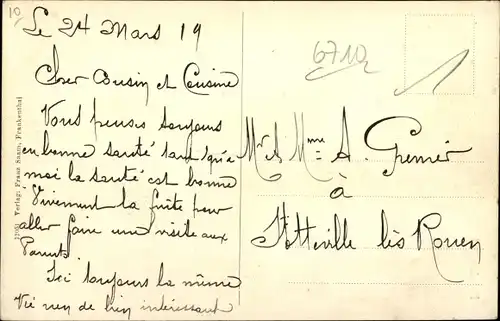 10
Le 24 Mars 19
Cher Cousin et Cousine
Vous pensés toujours
en bonne santé tant qu'a
moi la santé est bonne
Vivement la fuite pour
aller faire une visite aux
Parents.
Ici toujours la même
Vie rien de bien intéressant
6710
Mr & Mme A. Grenier
à
Sotteville lès Rouen
Verlag: Franz Saam, Frankenthal